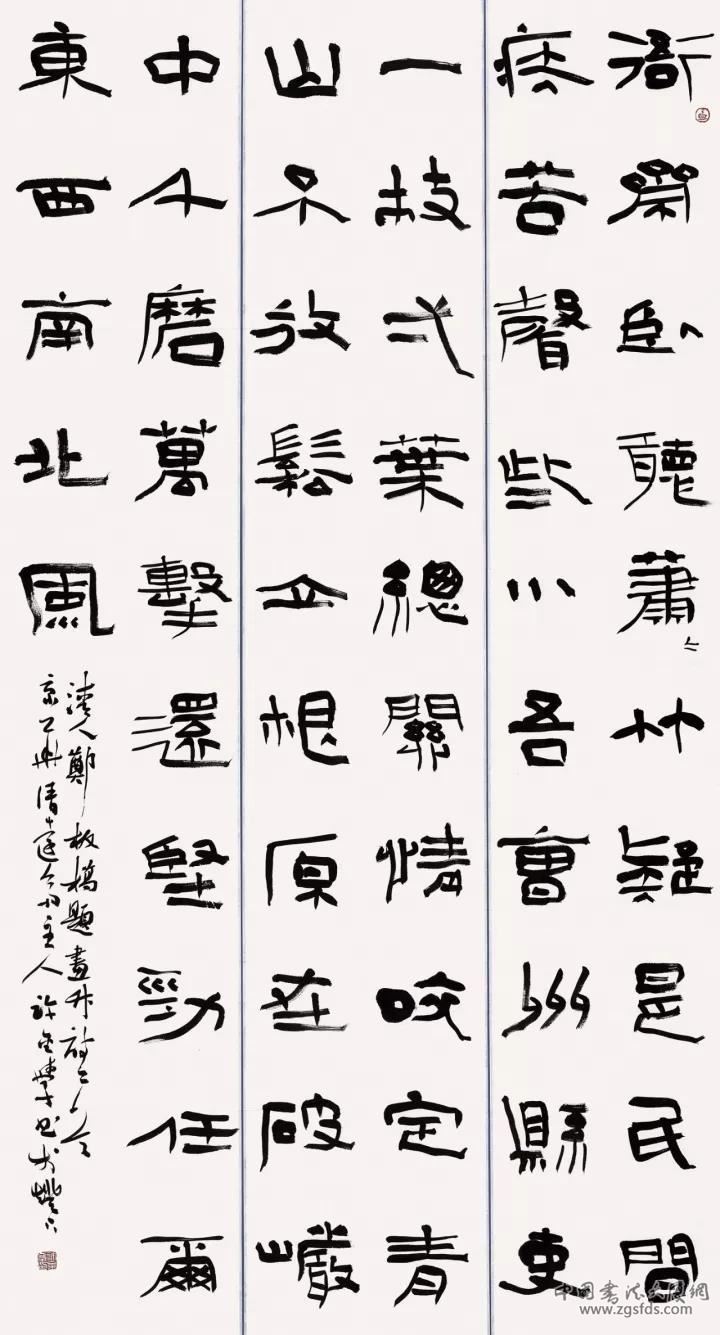 衙齋卧聽蕭〻竹疑是民間
疾苦聲些小吾曹州縣吏
一枝弌葉總關情咬定青
山不放鬆立根原在破巖
中千磨萬擊還堅勁任爾
東西南北風
清人鄭板橋題畫竹詩二首
主人許
www.zgsfds.com